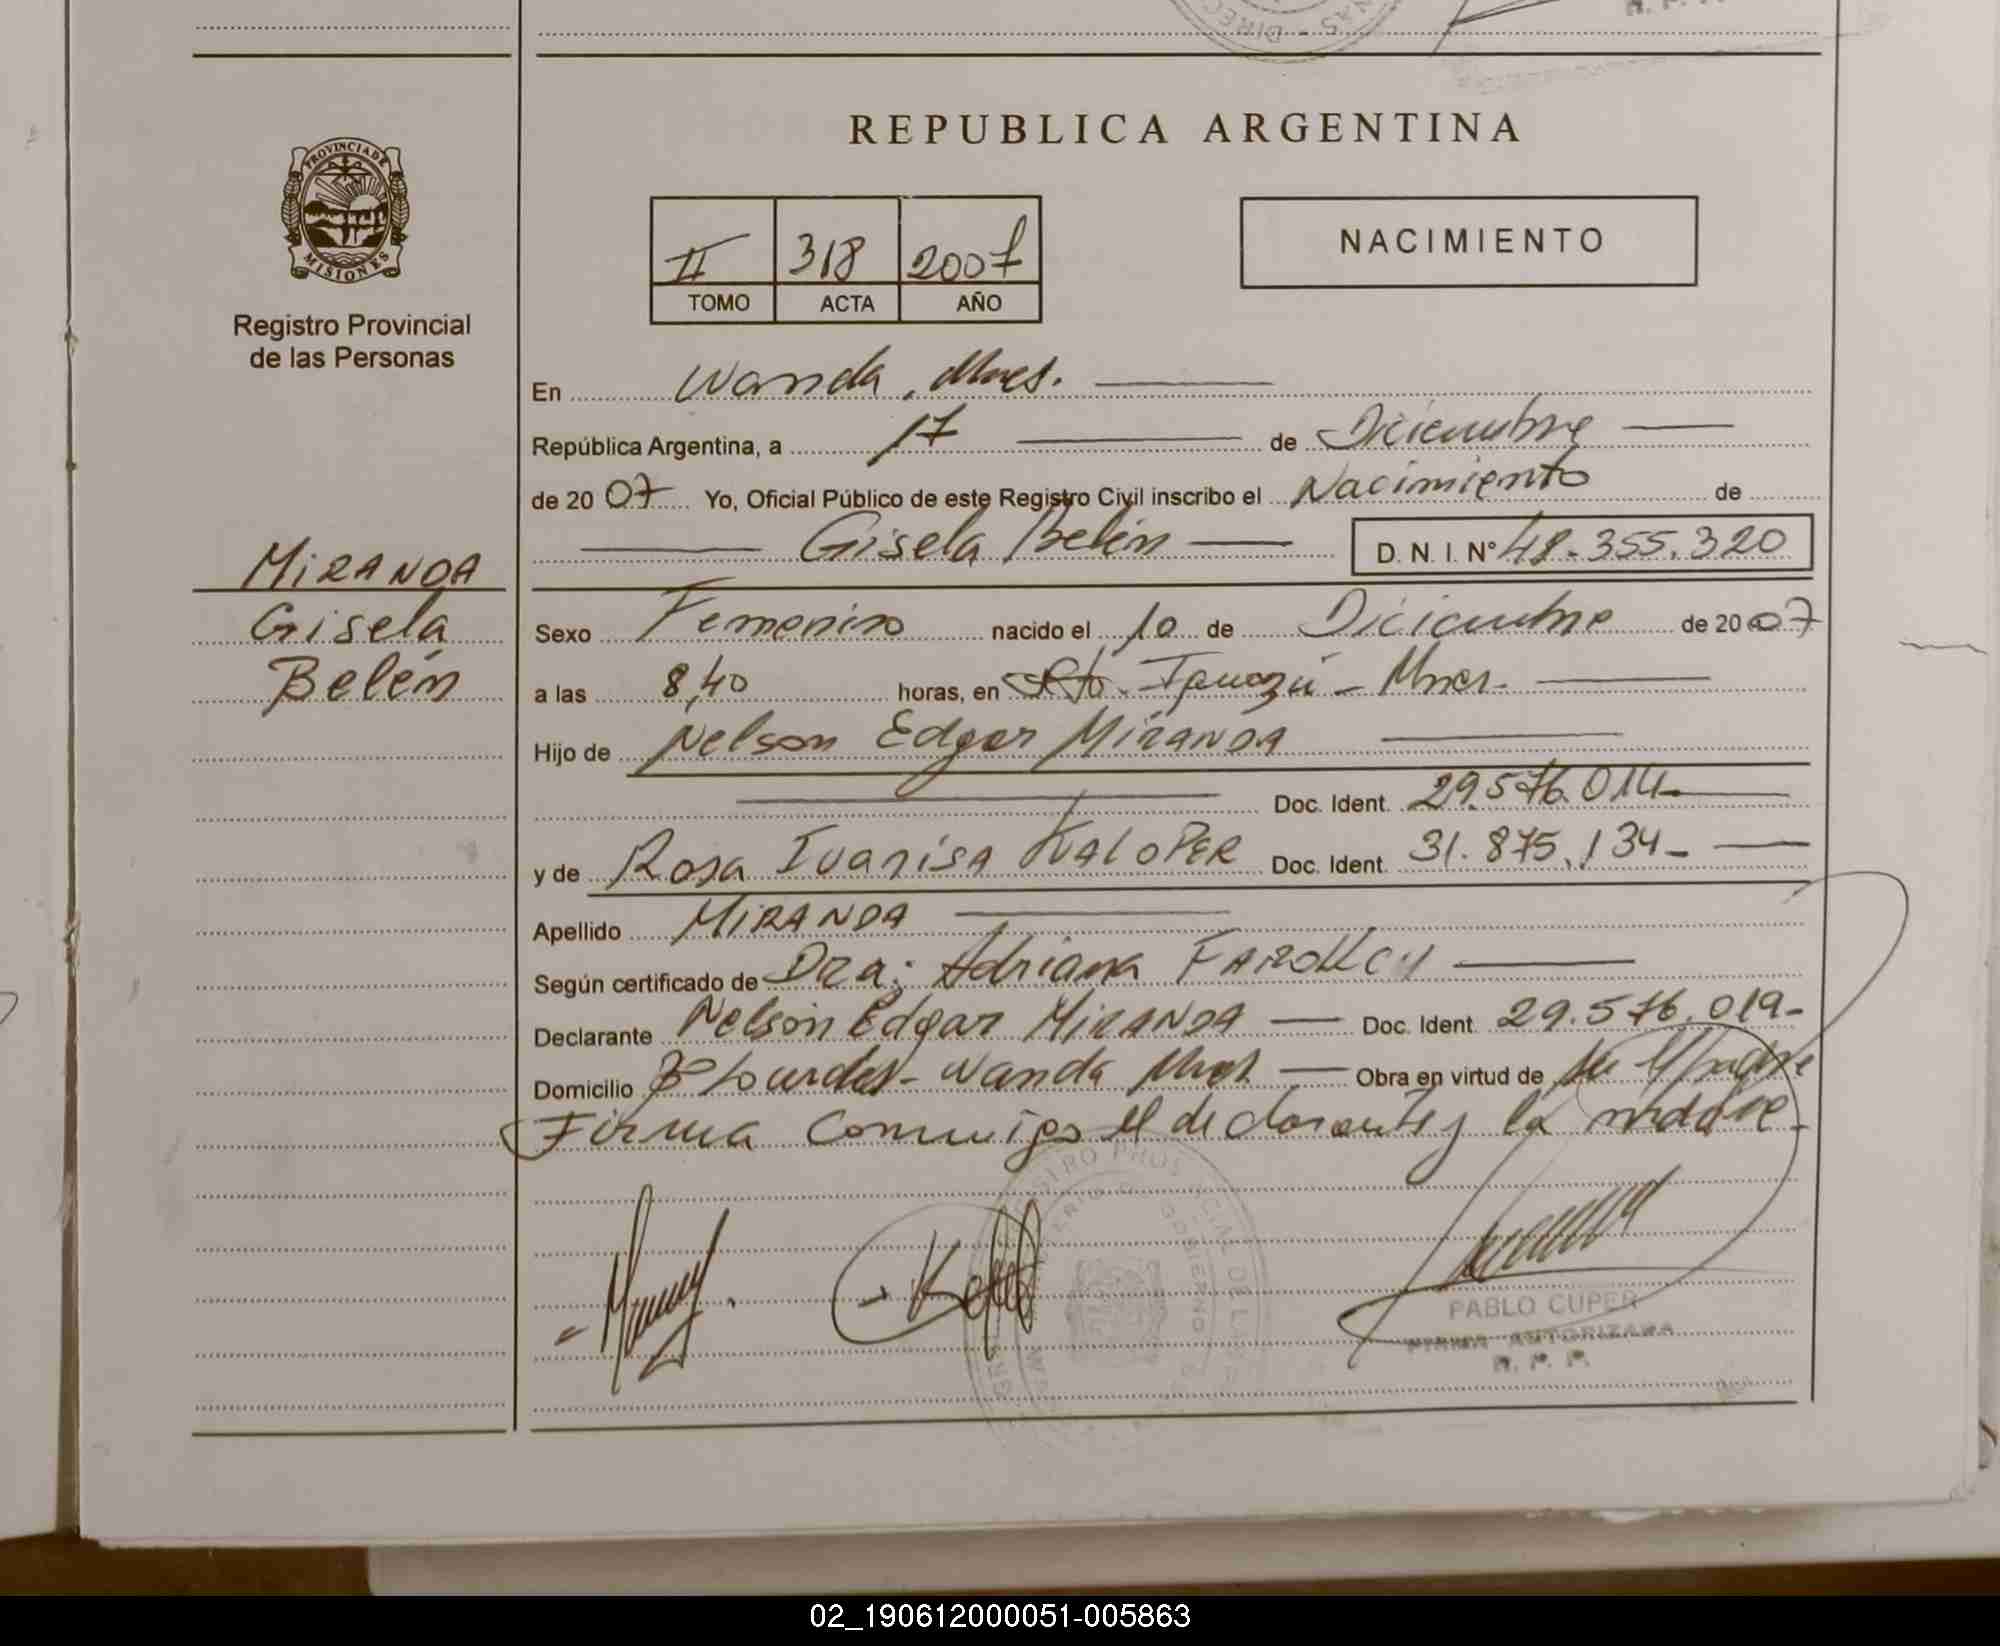 REPUBLICA ARGENTINA
PROVINCIA DE
MISIONES
Registro Provincial
de las Personas
II 318 2007
TOMO ACTA AÑO
NACIMIENTO
En Wanda, Mnes.
República Argentina, a 17 de Diciembre
de 2007 Yo, Oficial Público de este Registro Civil inscribo el Nacimiento de
Gisela Belén D. N. I. N° 48.355.320
MIRANDA
Gisela
Belén
Sexo Femenino nacido el 10 de Diciembre de 2007
a las 8,40 horas, en Pto. Iguazú - Mnes.
Hijo de Nelson Edgar MIRANDA
Doc. Ident. 29.576.014
y de Rosa Ivanisa KALOPER Doc. Ident. 31.875.134-
Apellido MIRANDA
Según certificado de Dra: Adriana
Declarante Nelson Edgar MIRANDA Doc. Ident. 29.576.019-
Domicilio B° Lourdes - Wanda Mnes Obra en virtud de ser padre
Firma Conmigo el declarante y la madre-
PABLO CUPER
FIRMA AUTORIZADA
R. P. P.
02_190612000051-005863